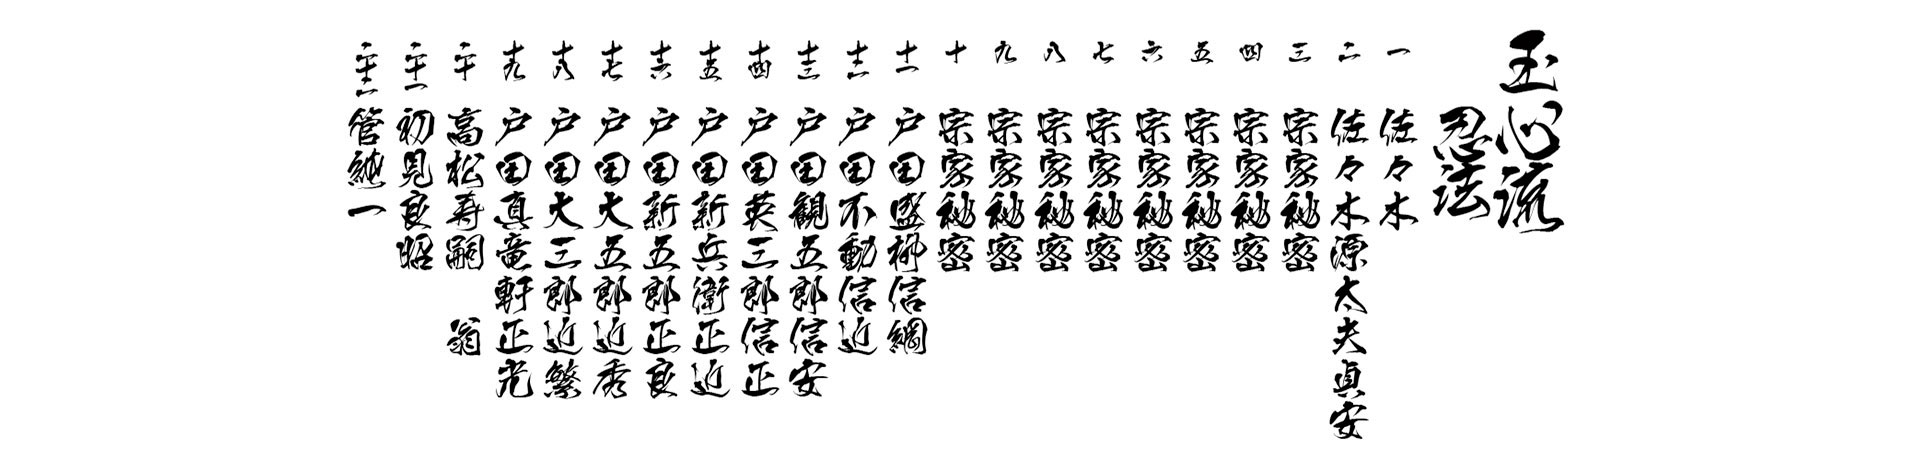 玉心流
忍法
一 佐々木
二 佐々木源太夫貞安
三 宗家秘密
四 宗家秘密
五 宗家秘密
六 宗家秘密
七 宗家秘密
八 宗家秘密
九 宗家秘密
十 宗家秘密
十一 戸田盛柳信綱
十二 戸田不動信近
十三 戸田観五郎信安
十四 戸田英三郎信正
十五 戸田新兵衛正近
十六 戸田新五郎正良
十七 戸田大五郎近秀
十八 戸田大三郎近繁
十九 戸田真竜軒正光
二十 高松寿嗣 翁
二十一 初見良昭
二十二 管純一